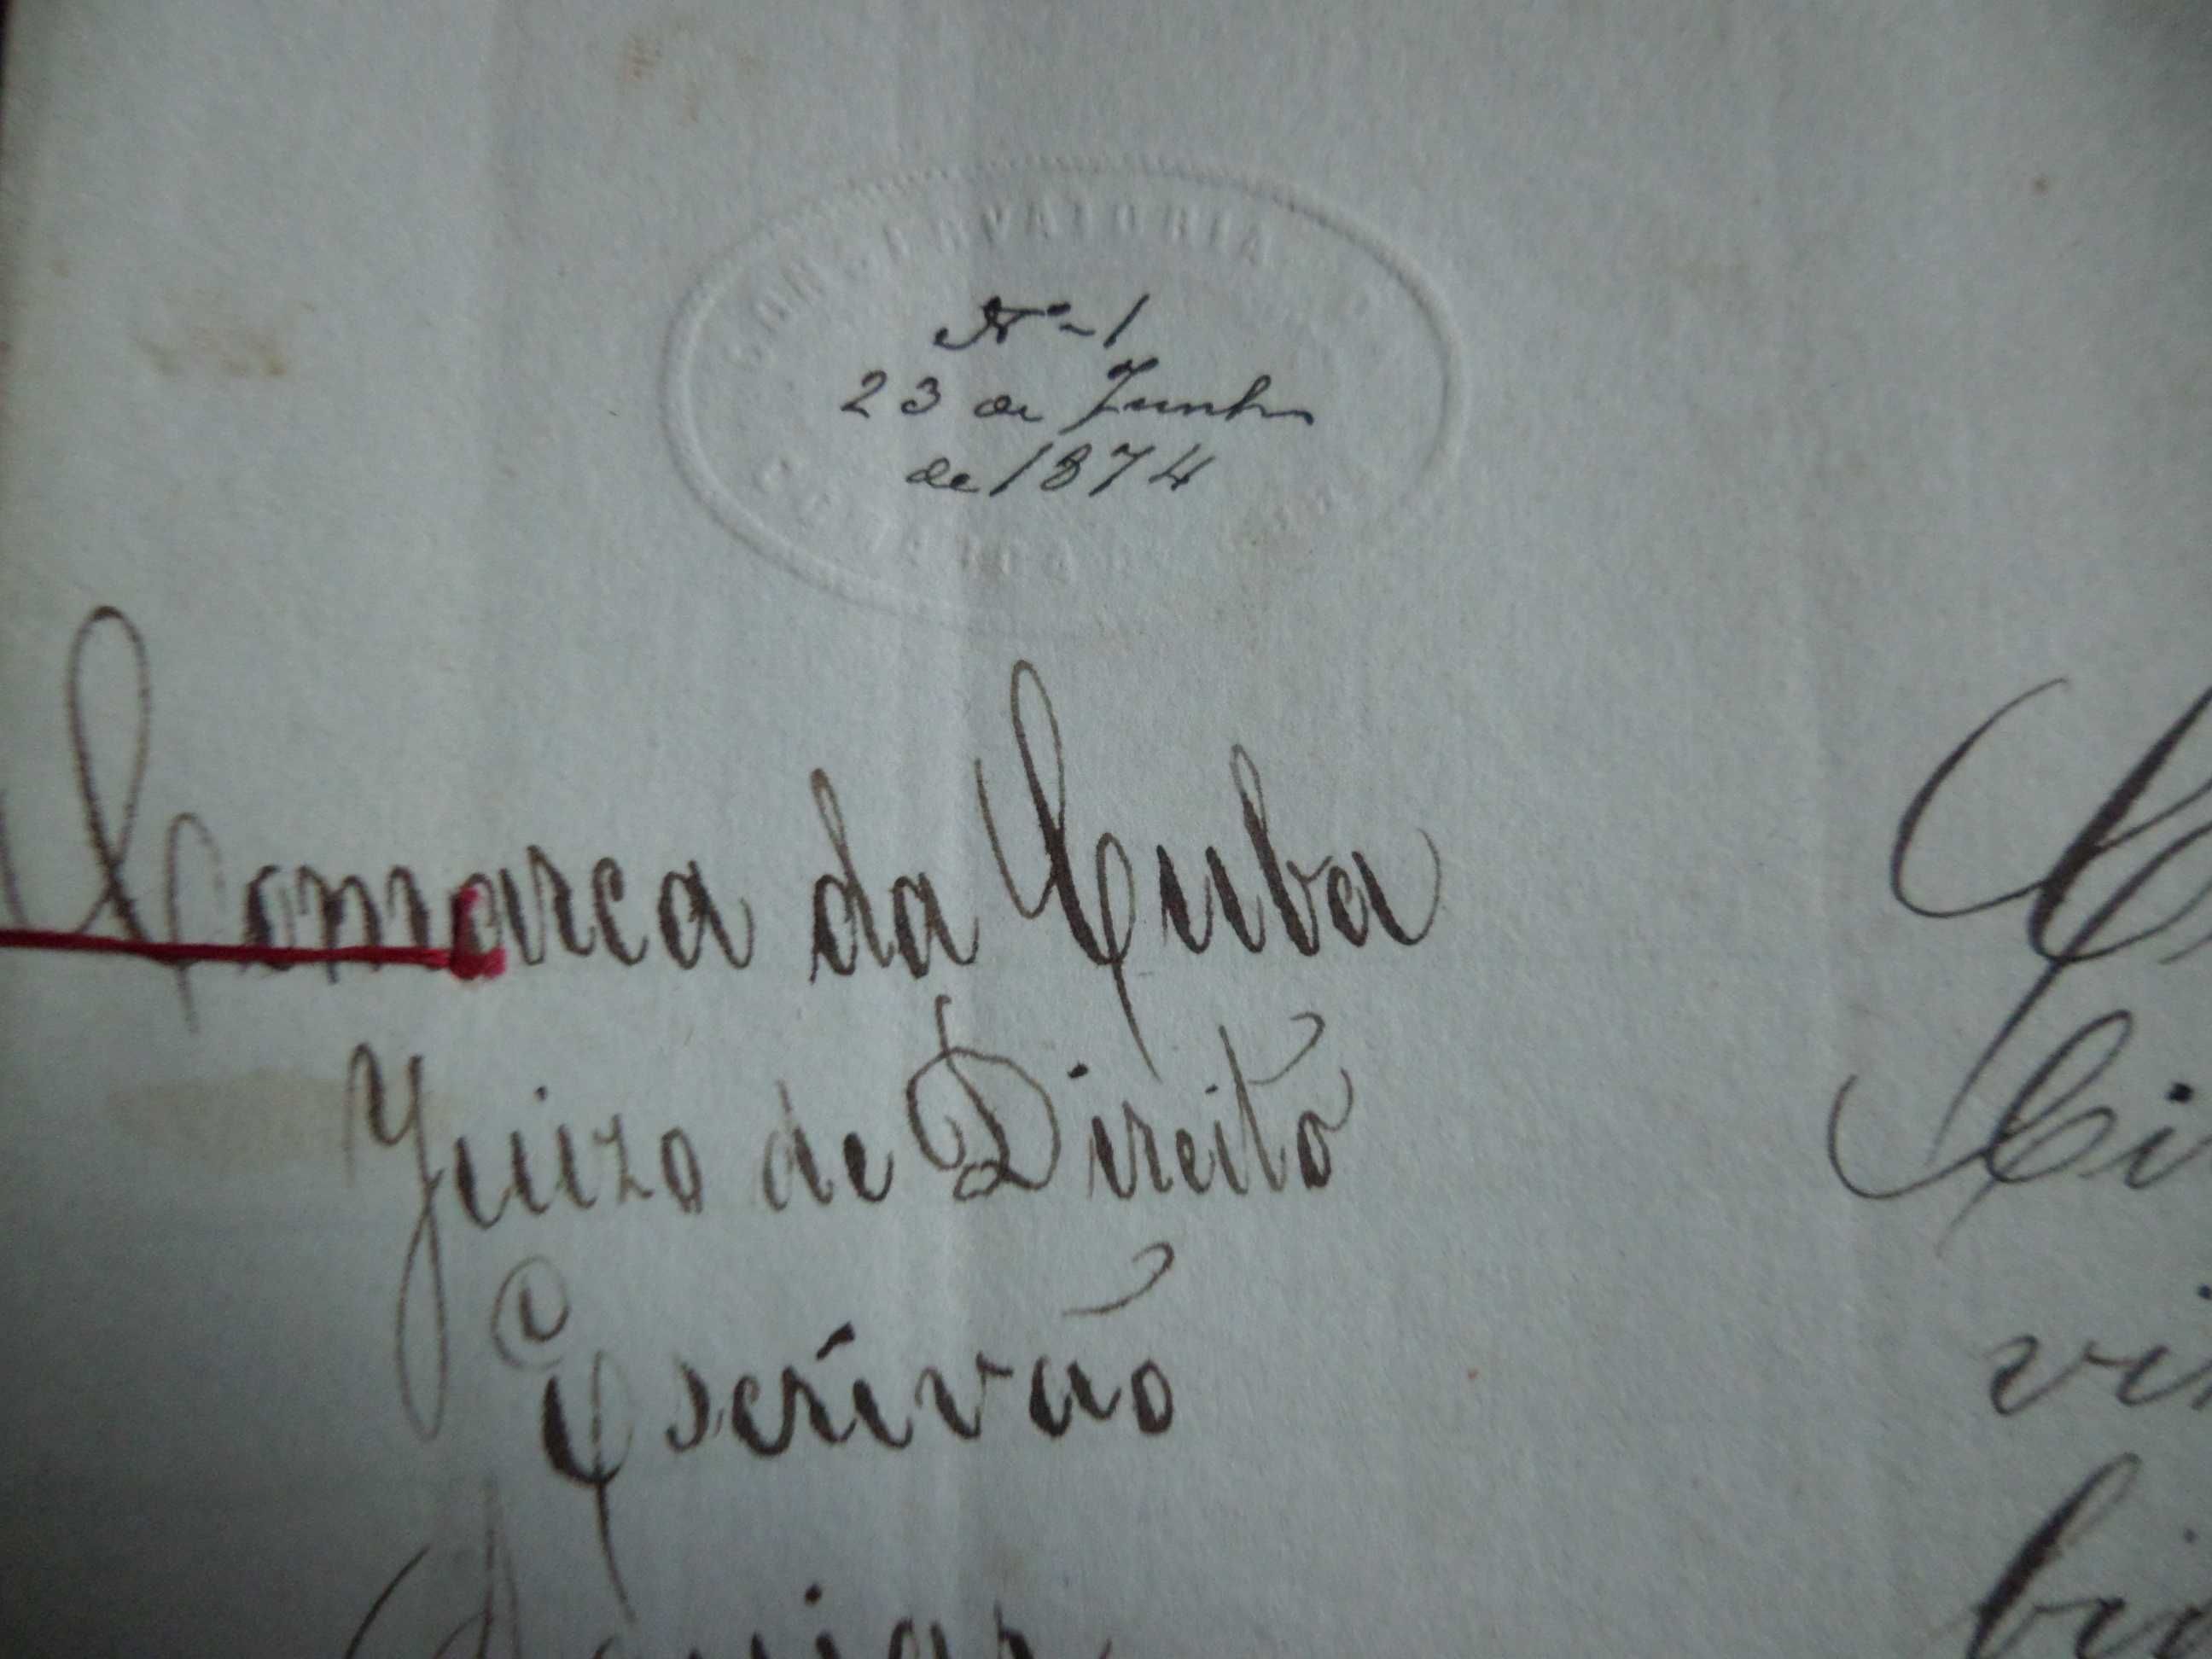 CONSERVATORIA
Nº 1
23 de Junho
de 1874
Comarca da Cuba
Juizo de Direito
Escrivão
Aguiar